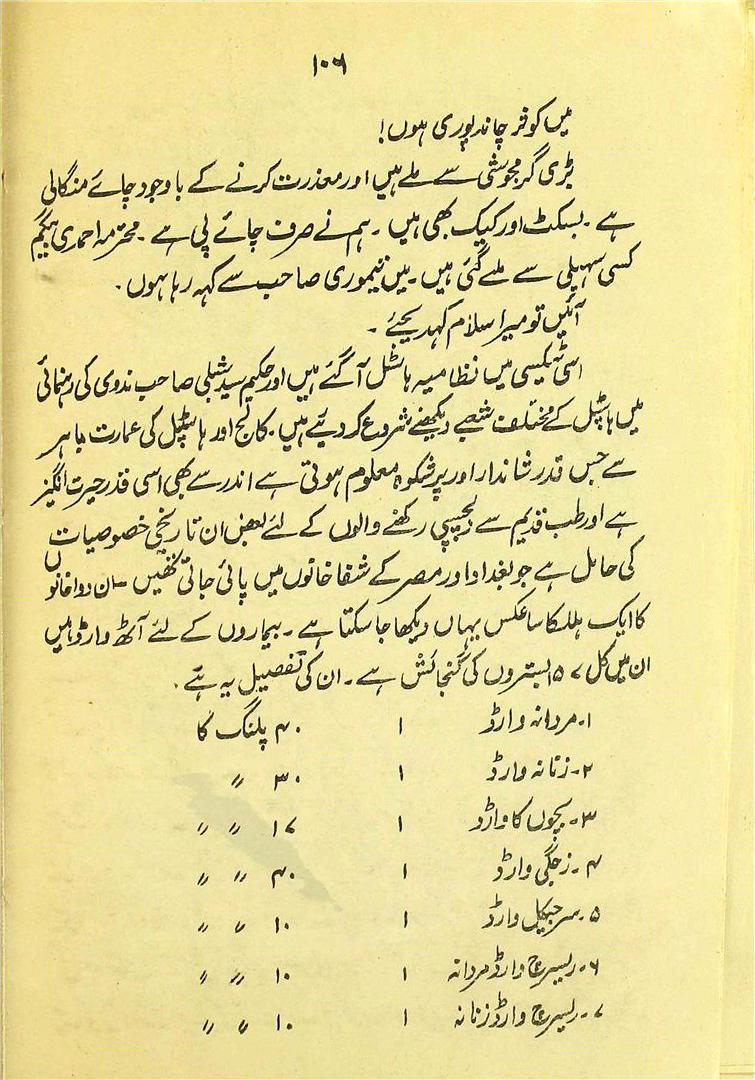 ۱۰۶
میں کوثر چاندپوری ہوں!
بڑی گرمجوشی سے ملے ہیں اور معذرت کرنے کے باوجود چائے منگالی
ہے ۔ بسکٹ اور کیک بھی ہیں ۔ ہم نے صرف چائے پی ہے ۔ محترمہ احمدی بیگم
کسی سہیلی سے ملنے گئی ہیں ۔ میں تیموری صاحب سے کہہ رہا ہوں ۔
آئیں تو میرا سلام کہدیجئے ۔
اسی ٹیکسی میں نظامیہ ہاسٹل آگئے ہیں اور حکیم سید شبلی صاحب ندوی کی رہنمائی
میں ہاسٹپل کے مختلف شعبے دیکھنے شروع کر دیئے ہیں ۔ کالج اور ہاسٹپل کی عمارت باہر
سے جس قدر شاندار اور پرشکوہ معلوم ہوتی ہے اندر سے بھی اسی قدر حیرت انگیز
ہے اور طب قدیم سے دلچسپی رکھنے والوں کے لئے بعض ان تاریخی خصوصیات
کی حامل ہے جو بغداد اور مصر کے شفا خانوں میں پائی جاتی تھیں ۔ ان دواخانوں
کا ایک ہلکا سا عکس یہاں دیکھا جا سکتا ہے ۔ بیماروں کے لئے آٹھ وارڈ ہیں
ان میں کل ۱۵۷ بستروں کی گنجائش ہے ۔ ان کی تفصیل یہ ہے ۔
۱۔ مردانہ وارڈ ۱ ۴۰ پلنگ کا
۲۔ زنانہ وارڈ ۱ ۳۰ 〃
۳۔ بچوں کا وارڈ ۱ ۱۷ 〃 〃
۴۔ زچگی وارڈ ۱ ۴۰ 〃 〃
۵۔ سرجیکل وارڈ ۱ ۱۰ 〃 〃
۶۔ ریسرچ وارڈ مردانہ ۱ ۱۰ 〃 〃
۷۔ ریسرچ وارڈ زنانہ ۱ ۱۰ 〃 〃